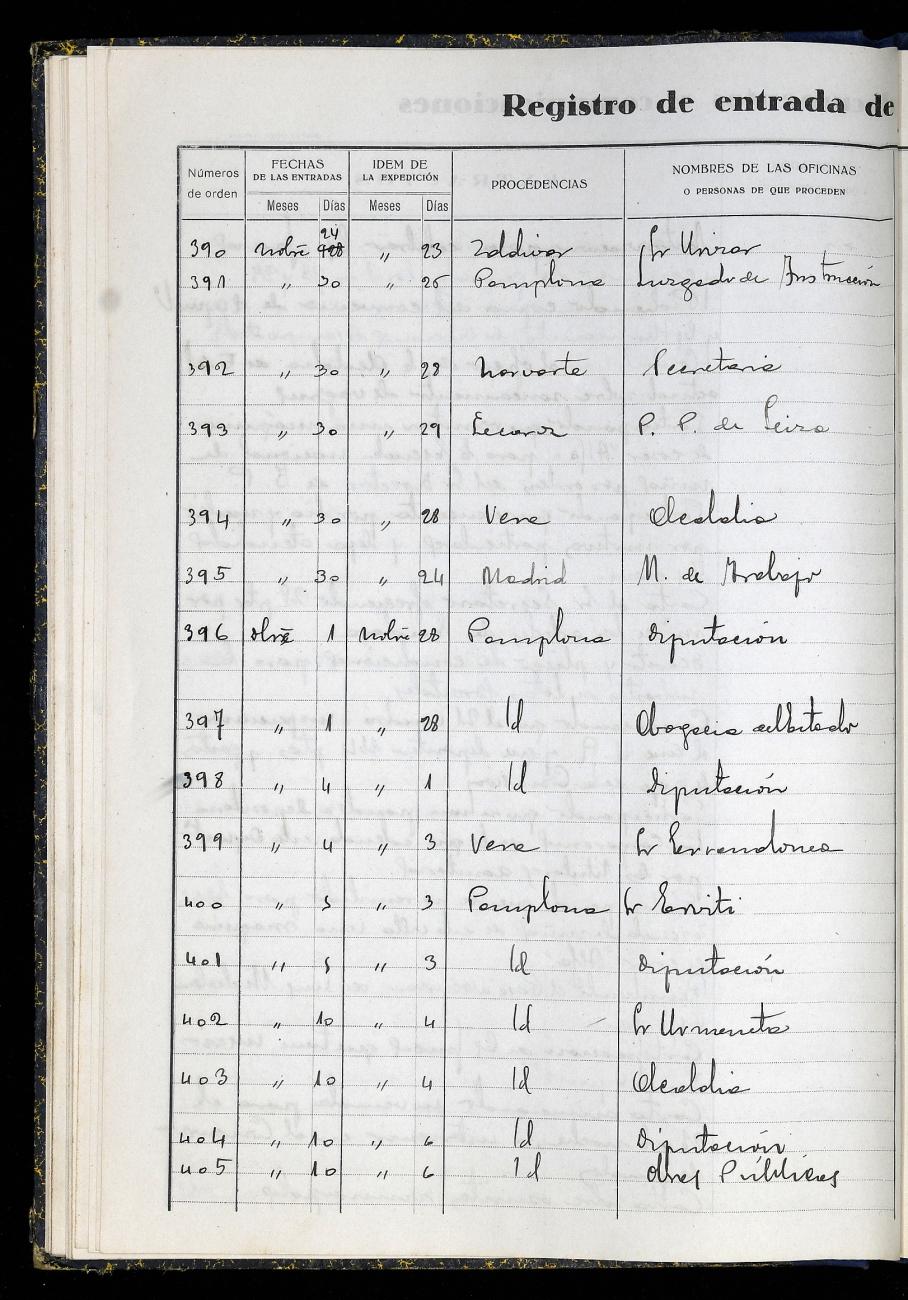 Registro de entrada de
Números de orden | FECHAS DE LAS ENTRADAS | IDEM DE LA EXPEDICIÓN | PROCEDENCIAS | NOMBRES DE LAS OFICINAS O PERSONAS DE QUE PROCEDEN
Meses | Días | Meses | Días
24
390 Nobre 23 Zaldivar Sr Unizar
391 " 30 " 26 Pamplona Juzgado de Instrucción
392 " 30 " 28 Narvarte Secretaria
393 " 30 " 29 Lecaroz P. P. de Leiza
394 " 30 " 28 Vera Alcaldia
395 " 30 " 24 Madrid M. de Trabajo
396 Dbre 1 Nobre 28 Pamplona Diputación
397 " 1 " 28 Id Abogacia del Estado
398 " 4 " 1 Id Diputación
399 " 4 " 3 Vera Sr Errandonea
400 " 5 " 3 Pamplona Sr Erviti
401 " 5 " 3 Id Diputación
402 " 10 " 4 Id Sr Urmeneta
403 " 10 " 4 Id Alcaldia
404 " 10 " 6 Id Diputación
405 " 10 " 6 Id Obras Públicas